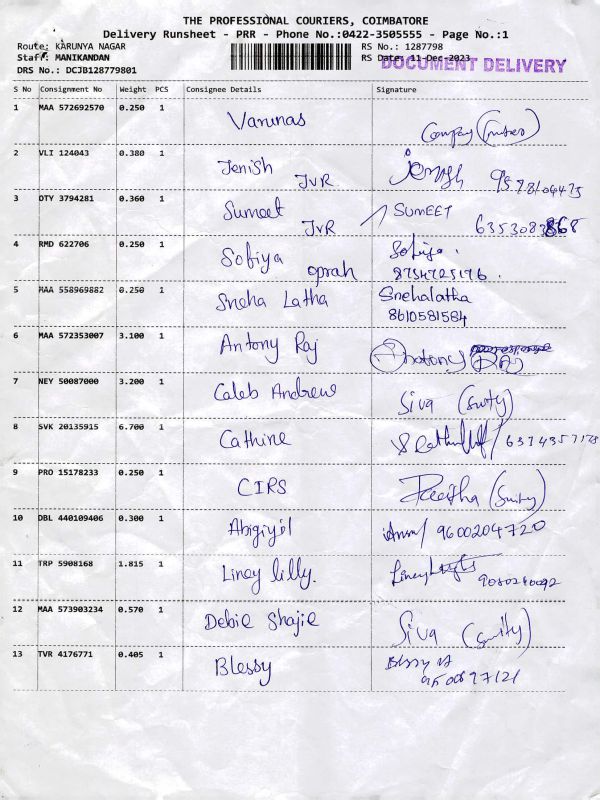 THE PROFESSIONAL COURIERS, COIMBATORE
Delivery Runsheet - PRR - Phone No.:0422-3505555 - Page No.:1
Route: KARUNYA NAGAR RS No.: 1287798
Staff: MANIKANDAN RS Date: 11-Dec-2023
DOCUMENT DELIVERY
DRS No.: DCJB128779801
S No Consignment No Weight PCS Consignee Details Signature
1 MAA 572692570 0.250 1 Varunas Company
2 VLI 124043 0.380 1 Jenish JVR
3 DTY 3794281 0.360 1 Sumeet JVR SUMEET
4 RMD 622706 0.250 1 Sofiya oprah Sofiya.
8754725176.
5 MAA 558969882 0.250 1 Sneha Latha Snehalatha
8610581584
6 MAA 572353007 3.100 1 Antony Raj
7 NEY 50087000 3.200 1 Caleb Andrew Siva
8 SVK 20135915 6.700 1 Cathine
9 PRO 15178233 0.250 1 CIRS
10 DBL 440109406 0.300 1 Abigiyil 9600204720
11 TRP 5908168 1.815 1 Liney lilly.
12 MAA 573903234 0.570 1 Debie Shajie Siva
13 TVR 4176771 0.405 1 Blessy Blessy